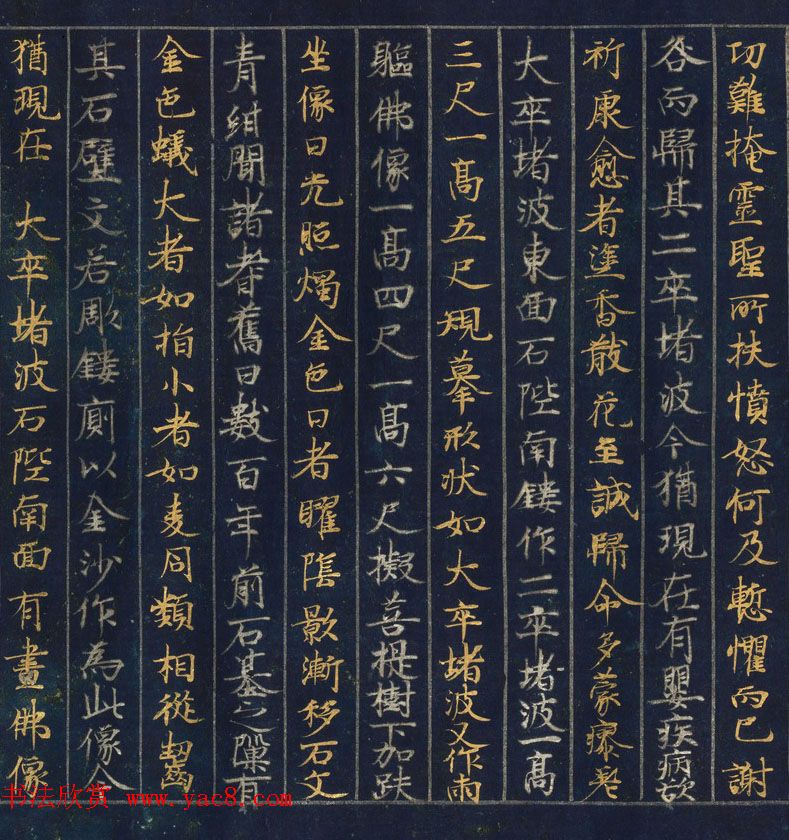 功難掩靈聖所扶憤怒何及慙懼而已謝
咎而歸其二卒堵波今猶現在有嬰疾病欲
祈康愈者塗香散花至誠歸命多蒙瘳差
大卒堵波東面石陛南鏤作二卒堵波一高
三尺一高五尺規摹形狀如大卒堵波又作兩
軀佛像一高四尺一高六尺擬菩提樹下加趺
坐像日光照燭金色日者曜陰影漸移石文
青紺聞諸耆舊曰數百年前石基之隟有
金色蟻大者如指小者如麦同類相從齧
其石壁文若彫鏤廁以金沙作為此像今
猶現在 大卒堵波石陛南面有畫佛像
书法欣赏 www.yac8.com